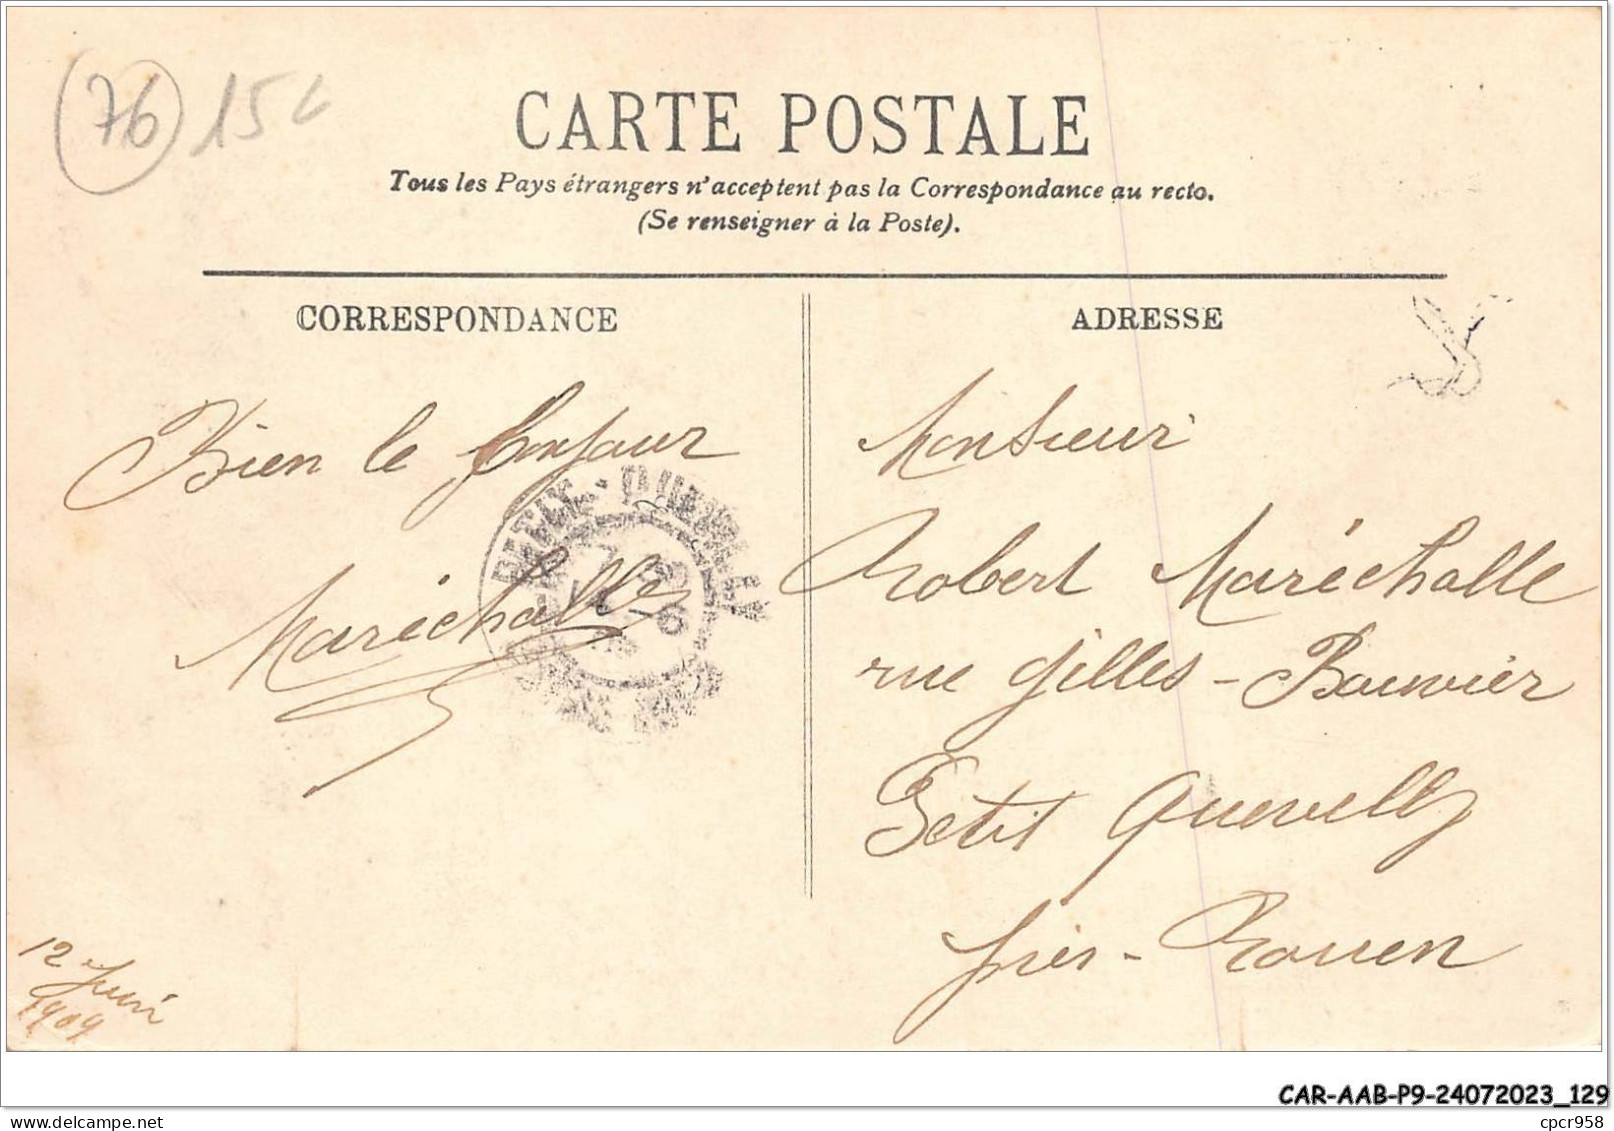 76 15
CARTE POSTALE
Tous les Pays étrangers n'acceptent pas la Correspondance au recto.
(Se renseigner à la Poste).
CORRESPONDANCE
Bien le bonjour
Maréchalle
12 Juin
1909
PETIT-QUEVILLY
ADRESSE
Monsieur
Robert Maréchalle
rue Gilles-Bouvier
Petit Quevilly
près-Rouen
CAR-AAB-P9-24072023_129
cpcr958